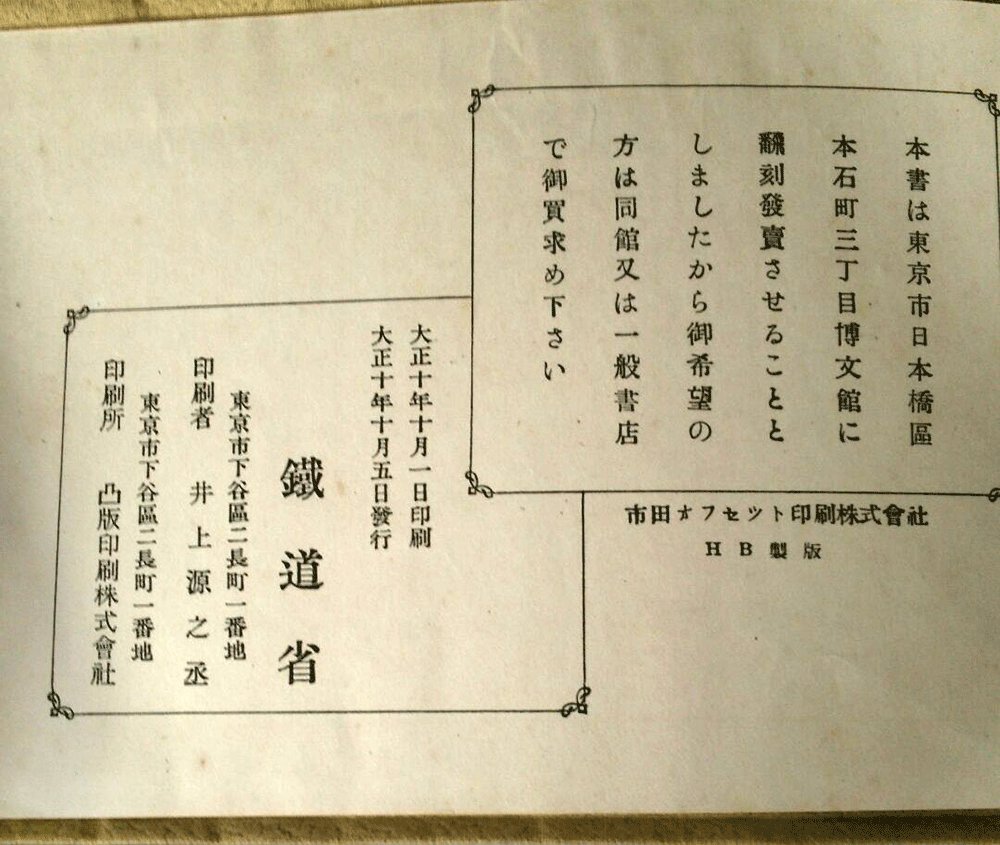 本書は東京市日本橋區
本石町三丁目博文館に
飜刻發賣させることと
しましたから御希望の
方は同館又は一般書店
で御買求め下さい
市田オフセット印刷株式會社
HB製版
大正十年十月一日印刷
大正十年十月五日發行
鐵道省
東京市下谷區二長町一番地
印刷者 井上源之丞
東京市下谷區二長町一番地
印刷所 凸版印刷株式會社